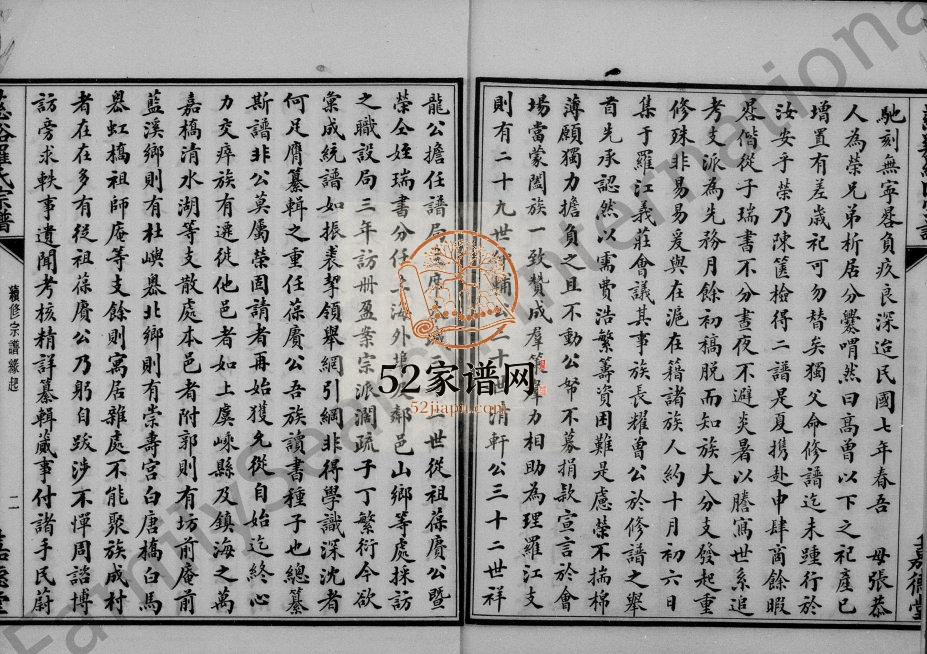 馳刻無寧晷負疚良深迨民國七年春吾　母張恭
人為榮兄弟析居分爨喟然曰高曾以下之祀產已
增置有差歲祀可勿替矣獨父命修譜迄未踵行於
汝安乎榮乃陳篋檢得二譜是夏携赴申肆商餘暇
晷偕從子瑞書不分晝夜不避炎暑以謄寫世系追
考支派為先務月餘初稿脫而知族大分支發起重
修殊非易易爰與在滬在籍諸族人約十月初六日
集于羅江義莊會議其事族長耀曾公於修譜之舉
首先承認然以需費浩繁籌資困難是慮榮不揣棉
薄願獨力擔負之且不動公帑不募捐款宣言於會
場當蒙闔族一致贊成羣策羣力相助為理羅江支
則有二十九世 輔公三十世清軒公三十二世祥
龍公擔任譜局 度 世從祖葆賡公暨
榮仝姪瑞書分任上海外埠 鄰邑山鄉等處採訪
之職設局三年訪册盈案宗派濶疏子丁繁衍今欲
彙成統譜如振裘挈領舉網引綱非得學識深沈者
何足膺纂輯之重任葆賡公吾族讀書種子也總纂
斯譜非公莫屬榮固請者再始獲允從自始迄終心
力交瘁族有遷徙他邑者如上虞嵊縣及鎮海之萬
嘉橋清水湖等支散處本邑者附郭則有坊前庵前
藍溪鄉則有杜嶼嶴北鄉則有崇壽宮白唐橋白馬
嶴虹橋祖師庵等支餘則寓居雜處不能聚族成村
者在在多有從祖葆賡公乃躬自跋涉不憚周諮博
訪旁求軼事遺聞考核精詳纂輯蕆事付諸手民蔚
慈谿羅氏宗譜
續修宗譜緣起
二
52家谱网
52jiapu.com
FamilySearch International